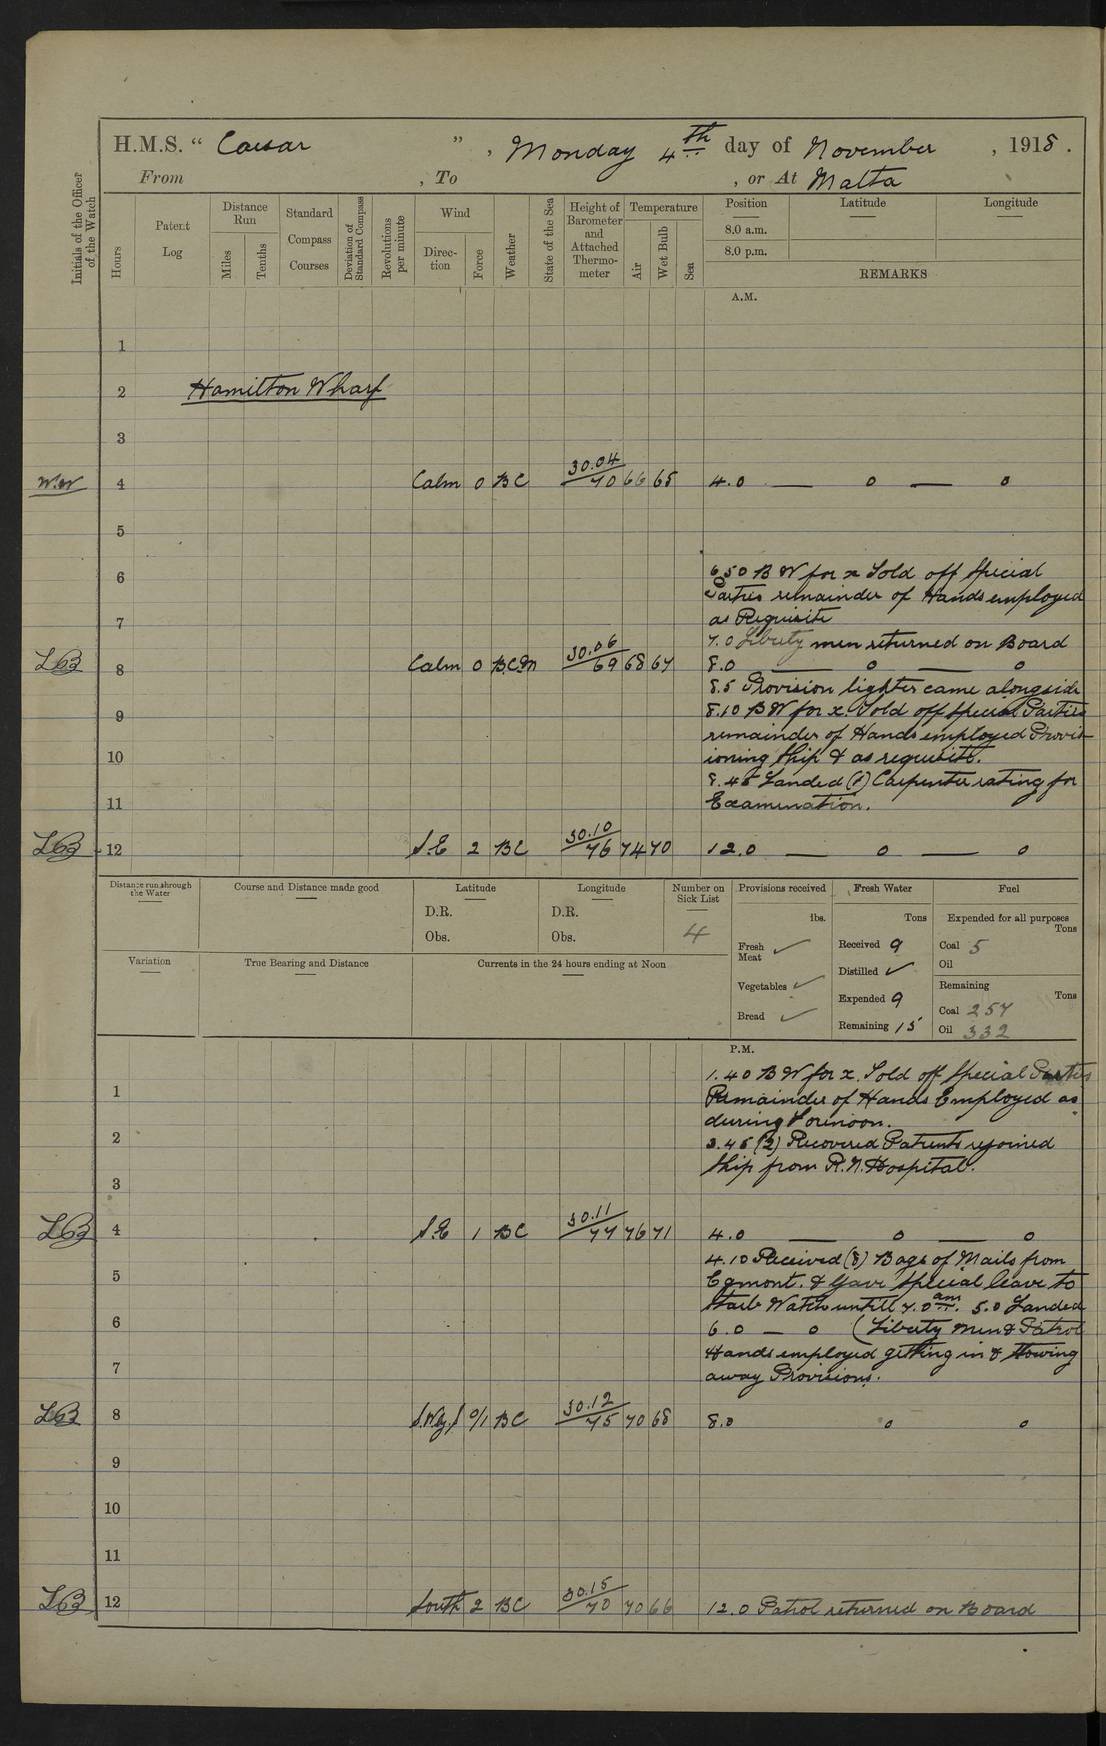 H.M.S. “ Caesar ” , Monday 4th day of November , 1918 .
From , To , or At Malta
Initials of the Officer of the Watch
Hours
Patent Log
Distance Run
Miles
Tenths
Standard Compass Courses
Deviation of Standard Compass
Revolutions per minute
Wind
Direction
Force
Weather
State of the Sea
Height of Barometer and Attached Thermometer
Temperature
Air
Wet Bulb
Sea
Position Latitude Longitude
8.0 a.m.
8.0 p.m.
REMARKS
A.M.
1
2 Hamilton Wharf
3
W.W 4 Calm 0 BC 30.04 70 66 65 4.0 — 0 — 0
5
6 6.50 B W for x Told off Special
Parties remainder of Hands employed
7 as Requisite
7.0 Liberty men returned on Board
8 Calm 0 BCM 30.06 69 68 67 8.0 — 0 — 0
8.5 Provision lighter came alongside
9 8.10 B W for x. Told off Special Parties
remainder of Hands employed Provis-
10 ioning Ship & as requisite.
8.45 Landed (1) Carpenter rating for
11 Examination.
12 S.E 2 BC 30.10 76 74 70 12.0 — 0 — 0
Distance run through the Water
Course and Distance made good
Latitude
D.R.
Obs.
Longitude
D.R.
Obs.
Number on Sick List
4
Provisions received
lbs.
Fresh Meat ✓
Vegetables ✓
Bread ✓
Fresh Water
Tons
Received 9
Distilled ✓
Expended 9
Remaining 15
Fuel
Expended for all purposes
Tons
Coal 5
Oil
Remaining
Tons
Coal 257
Oil 332
Variation
True Bearing and Distance
Currents in the 24 hours ending at Noon
P.M.
1.40 B W for x. Told off Special Parties
1 Remainder of Hands Employed as
during Forenoon.
2 3.45 (2) Recovered Patients rejoined
Ship from R.N. Hospital.
3
4 S.E 1 BC 30.11 77 76 71 4.0 — 0 — 0
4.10 Received (8) Bags of Mails from
5 Egmont. & Gave Special leave to
Starb Watch untill 7.0 am. 5.0 Landed
6 6.0 — 0 (Liberty Men & Patrol
Hands employed getting in & Stowing
7 away Provisions.
8 S.W.by.S 0/1 BC 30.12 75 70 68 8.0 0 0
9
10
11
12 South 2 BC 30.15 70 70 66 12.0 Patrol returned on Board